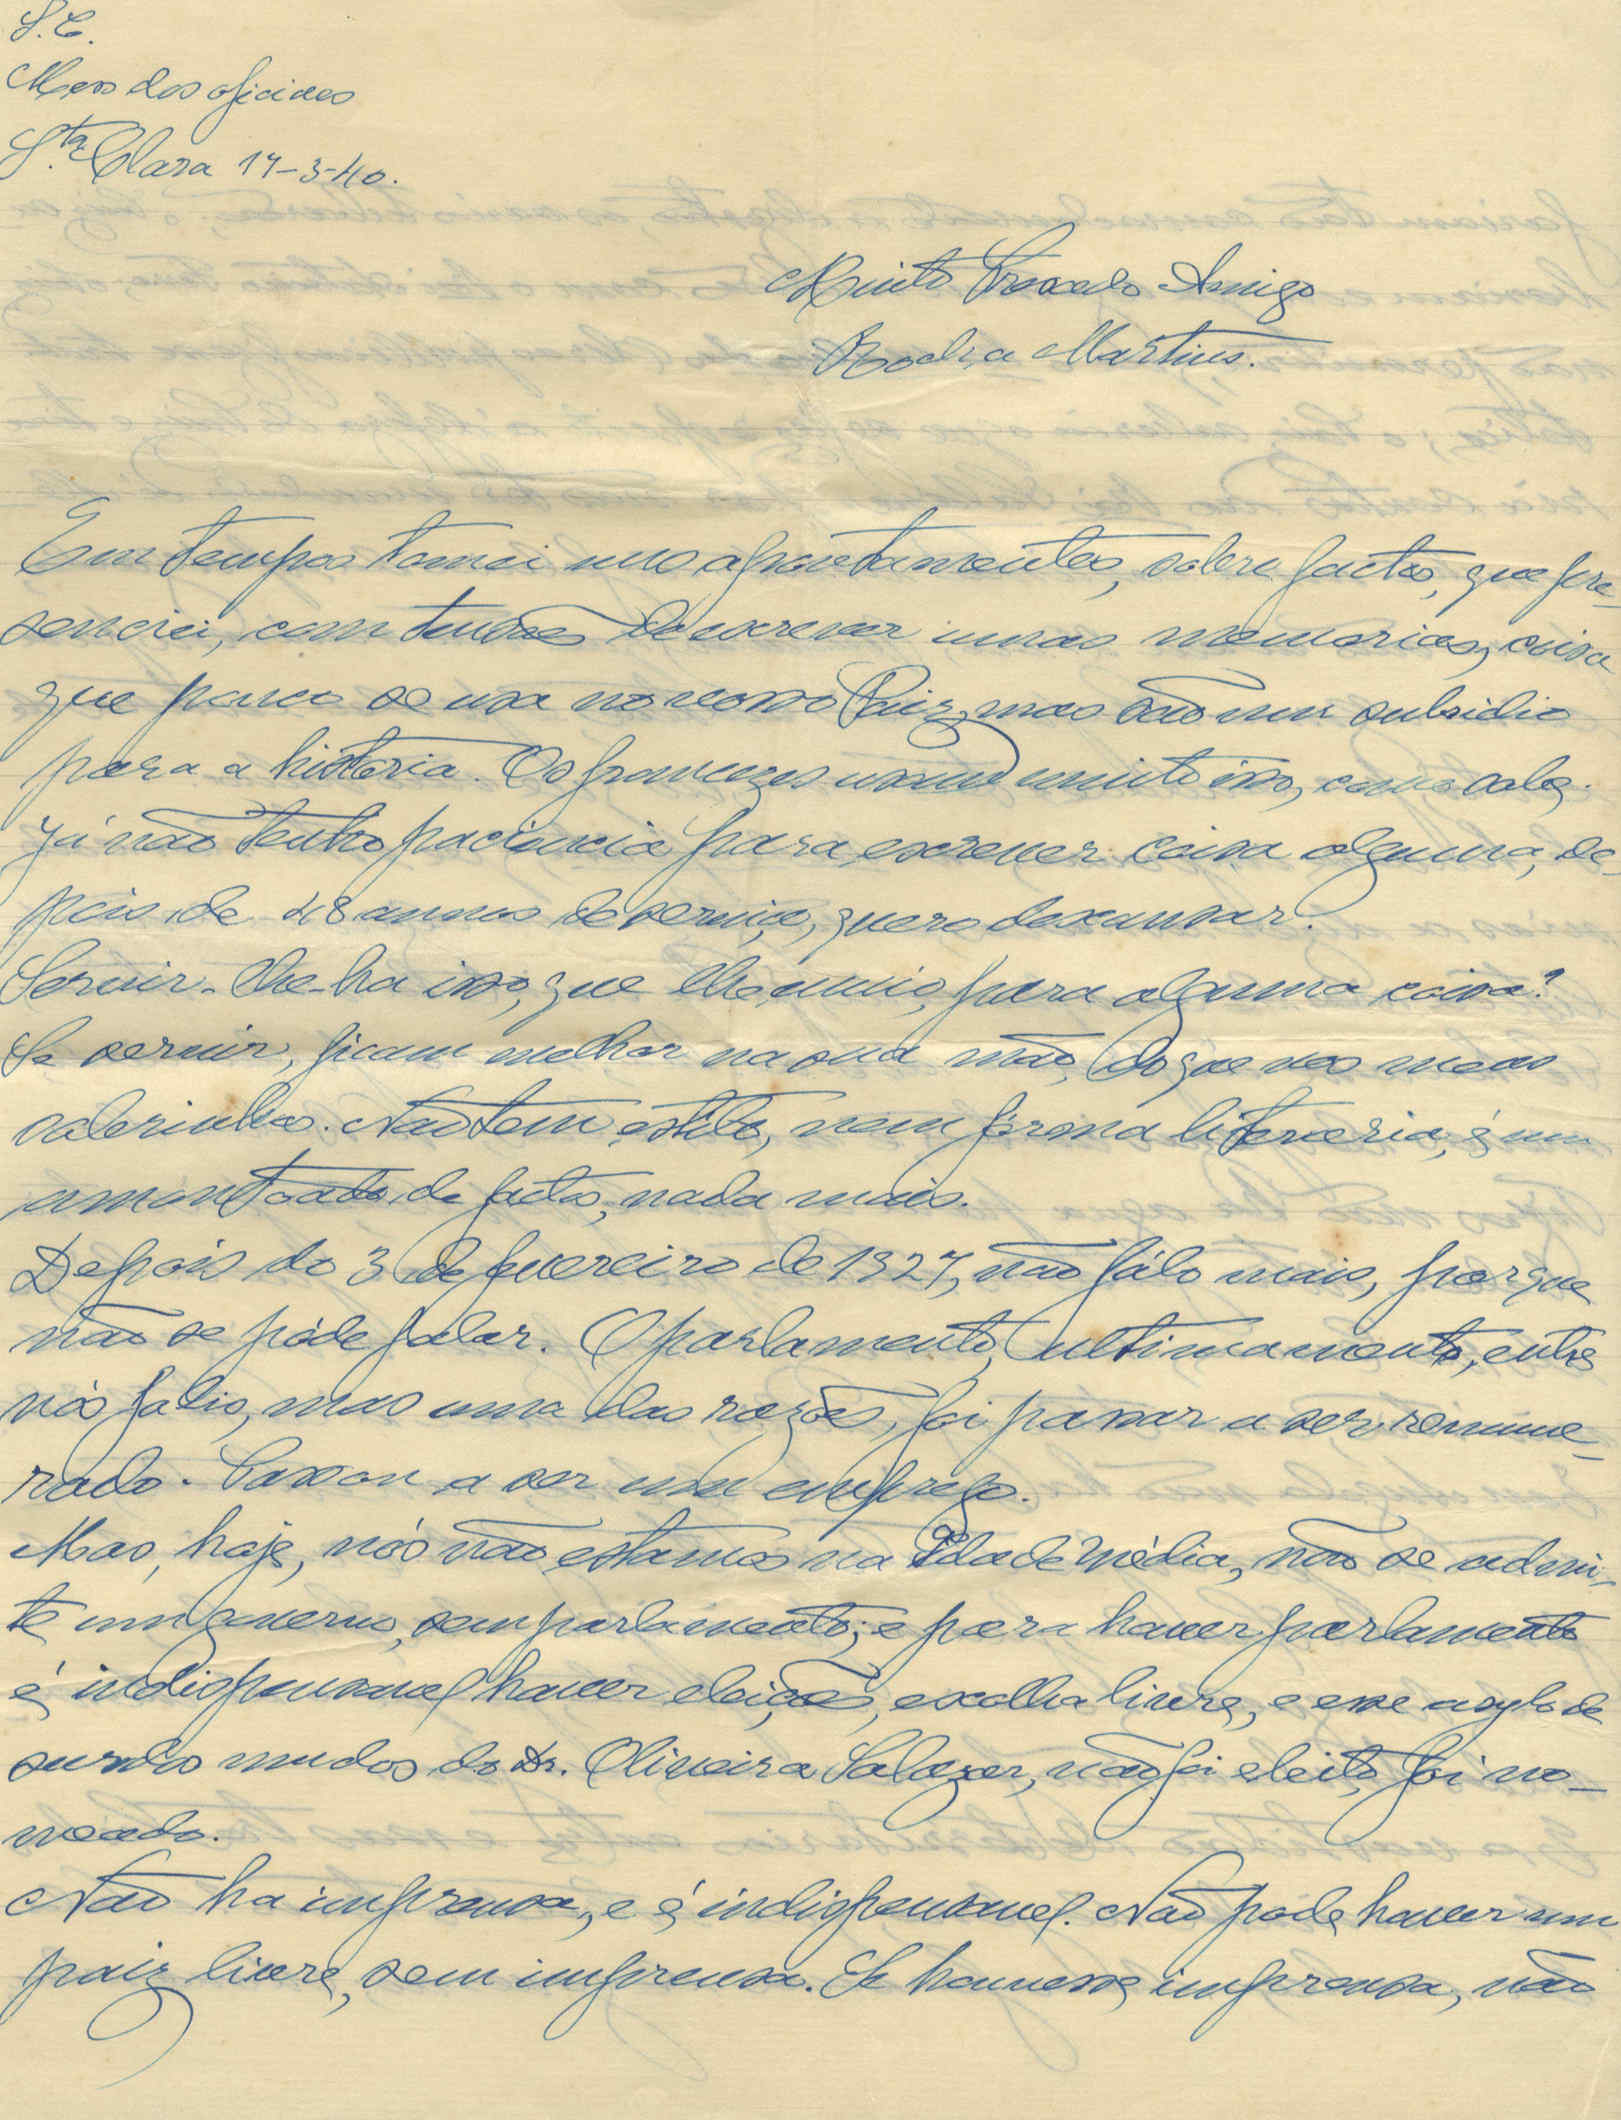 S. C.
Mess dos oficiaes
S.ta Clara 17-3-40.
Muito Prezado Amigo
Rocha Martins.
Em tempos tomei uns apontamentos, sobre factos, que pre-
senciei, com tenções de escrever umas memorias, coisa
que pouco se usa no nosso Paiz, mas são um subsidio
para a historia. Os francezes usam muito isso, como sabe.
Já não tenho paciencia para escrever coisa alguma, de-
pois de 48 annos de serviço, quero descansar.
Servir-lhe-ha isso, que lhe envio, para alguma coisa?
Se servir, ficam melhor na sua mão, do que nos meus
. Não tem estilo, nem fórma literaria, é um
amontoado de factos, nada mais.
Depois do 3 de fevereiro de 1927, não fálo mais, porque
não se póde falar. O parlamento, ultimamente, entre
nós faliu, mas uma das razões, foi passar a ser remune-
rado. Passou a ser um emprego.
Mas, hoje, nós não estamos na Idade Média, não se admi-
te um governo, sem parlamento; e para haver parlamento
é indispensavel haver eleições, escolha livre, e esse asylo de
surdos mudos do Dr. Oliveira Salazar, não foi eleito, foi no-
meado.
Não ha imprensa, e é indispensavel. Não pode haver um
paiz livre, sem imprensa. Se houvesse imprensa, não